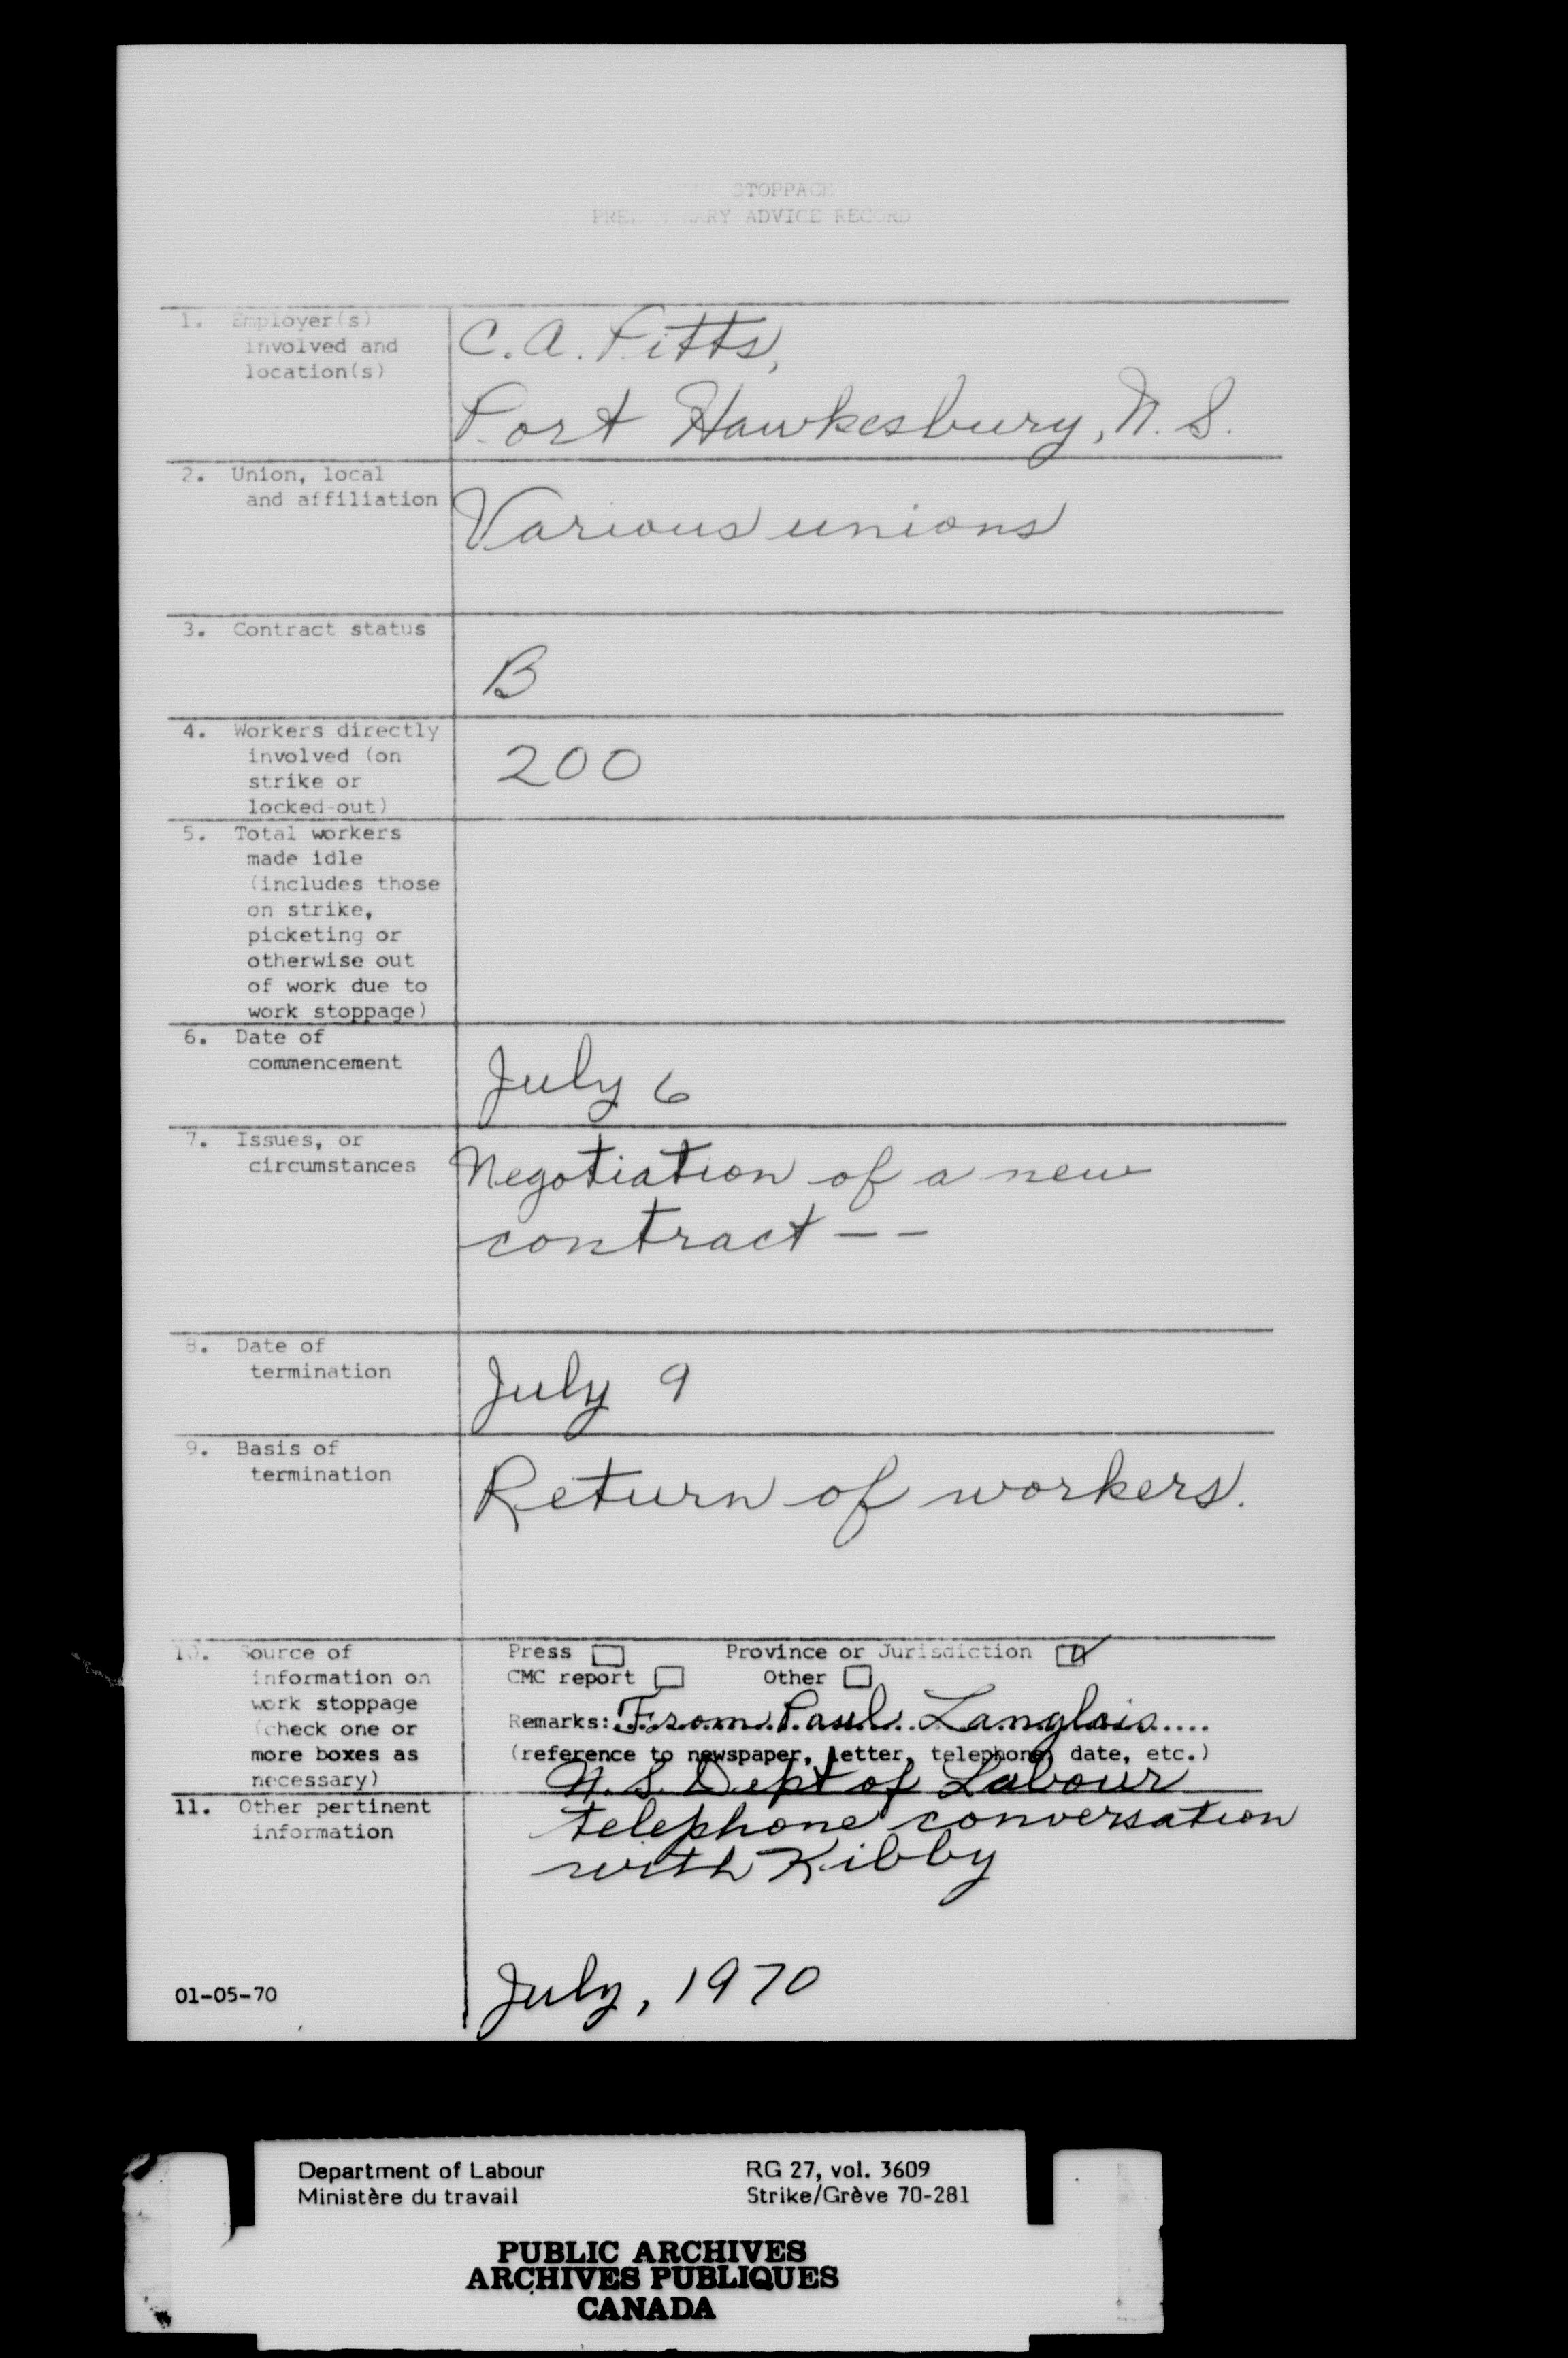 STOPPAGE
ADVICE RECORD
1. Employer(s)
involved and
location(s)
C.A. Pitts,
Port Hawkesbury, N.S.
2. Union, local
and affiliation
Various unions
3. Contract status
B
4. Workers directly
involved (on
strike or
locked-out)
200
5. Total workers
made idle
(includes those
on strike,
picketing or
otherwise out
of work due to
work stoppage)
6. Date of
commencement
July 6
7. Issues, or
circumstances
Negotiation of a new
contract - -
8. Date of
termination
July 9
9. Basis of
termination
Return of workers.
10. Source of
information on
work stoppage
(check one or
more boxes as
necessary)
Press Province or Jurisdiction
CMC report Other
Remarks: From Paul Langlois....
(reference to newspaper, letter, telephone, date, etc.)
N.S. Dept of Labour
11. Other pertinent
information
telephone conversation
with Kibby
July, 1970
01-05-70
Department of Labour RG 27, vol. 3609
Ministère du travail Strike/Grève 70-281
PUBLIC ARCHIVES
ARCHIVES PUBLIQUES
CANADA